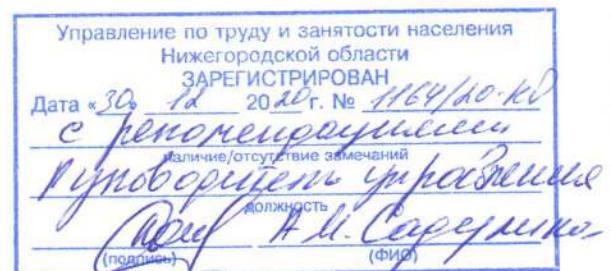 Управление по труду и занятости населения
Нижегородской области
ЗАРЕГИСТРИРОВАН
Дата «30» 12 2020 г. № 1164/20-КД
с рекомендациями
наличие/отсутствие замечаний
Руководитель управления
должность
А.М.
(подпись) (ФИО)